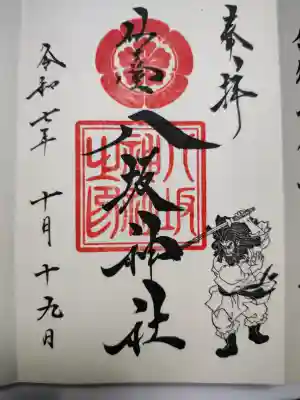 奉拝
八坂神社
八坂
神社
之印
令和七年 十月 十九日